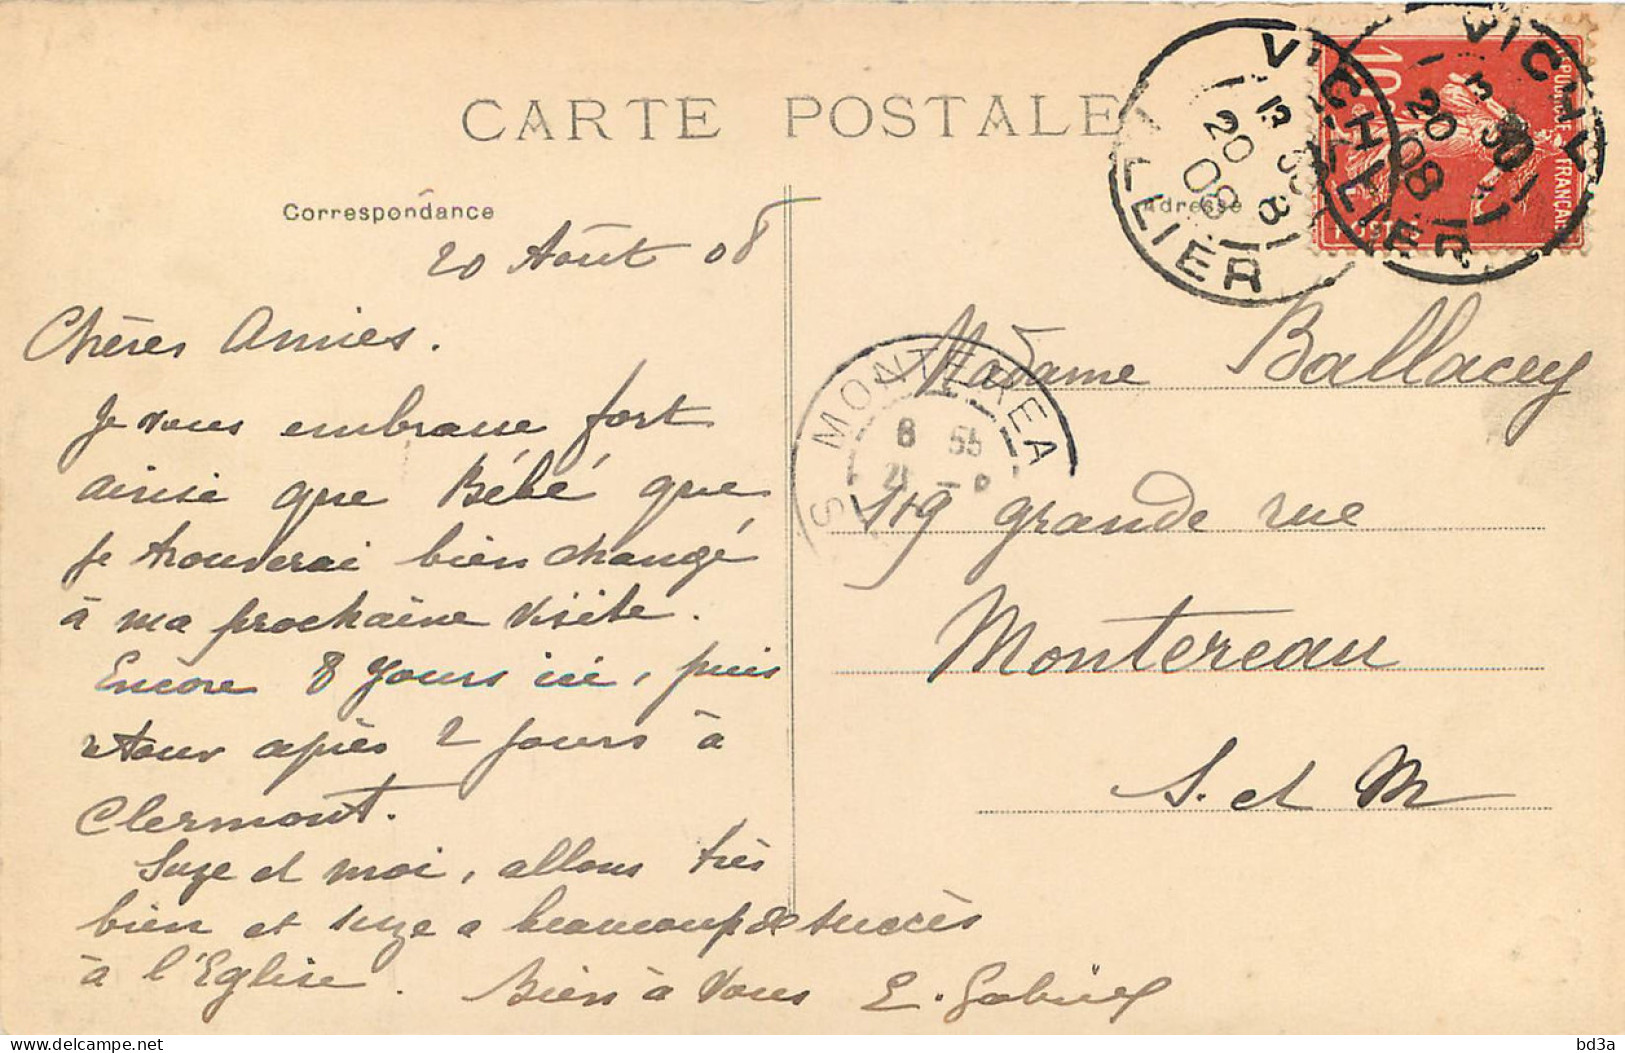 CARTE POSTALE
Correspondance
Adresse
VICHY
ALLIER
20
08
VICHY
ALLIER
3 30
20
08
10c
RÉPUBLIQUE FRANÇAISE
POSTES
20 Août 08
Chères Amies.
Je vous embrasse fort
ainsi que Bébé que
je trouverai bien changé
à ma prochaine visite.
Encore 8 jours ici, puis
retour après 2 jours à
Clermont.
Suze et moi, allons très
bien et Suze a beaucoup de succès
à l'Eglise. Bien à vous E. Gabriel
MONTEREAU
8 55
21
S
Madame Ballacey
119 grande rue
Montereau
S. et M
bd3a